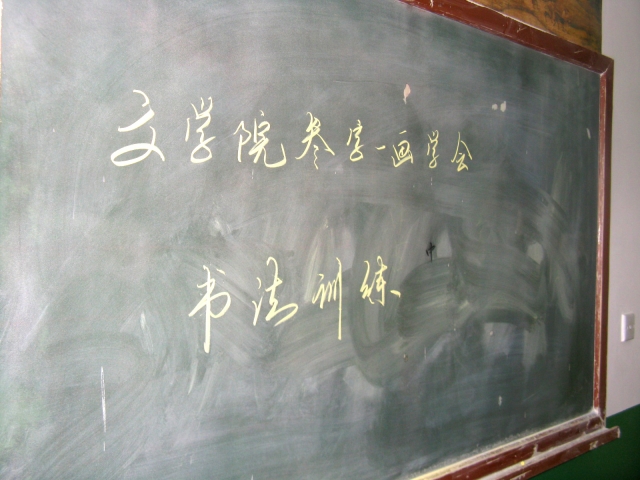 文学院叁字一画学会
书法训练